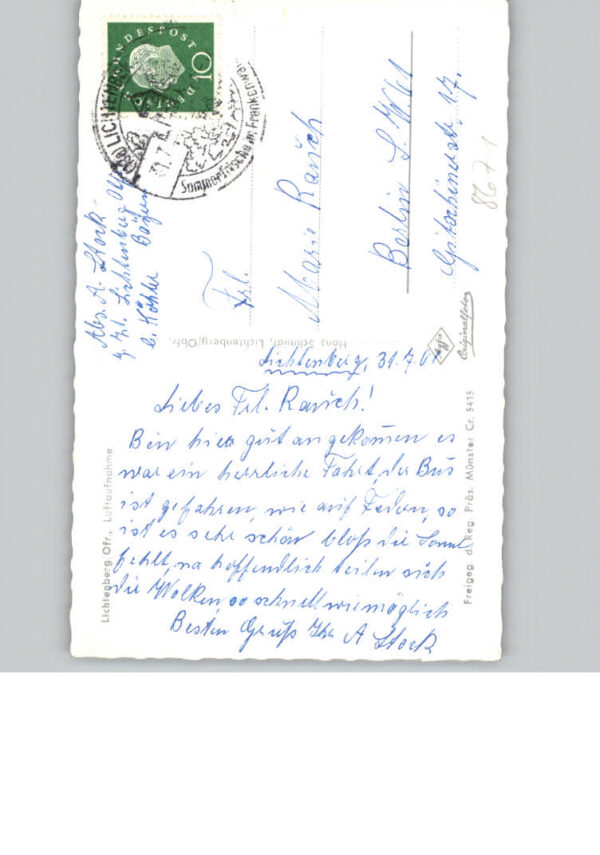 DEUTSCHE BUNDESPOST
10
LICHTENBERG
Sommerfrische im Frankenwald
Abs. A. Stock
z. Zt. Lichtenberg Ofr
b. Köhler Bayern
Frl.
Marie Rausch
Berlin S.W. 61
Gitschinerstr. 17.
8671
Hans Schmidt, Lichtenberg/Obfr.
Originalfoto
Lichtenberg, 31.7.61
Liebes Frl. Rausch!
Bin hier gut angekommen es
war ein herrliche Fahrt, der Bus
ist gefahren, wie auf Federn, so
ist es sehr schön bloß die Sonne
fehlt, na hoffendlich teilen sich
die Wolken so schnell wie möglich
Besten Gruß Ihr A Stock
Lichtenberg/Ofr., Luftaufnahme
Freigeg. d. Reg. Präs. Münster Cr. 5415